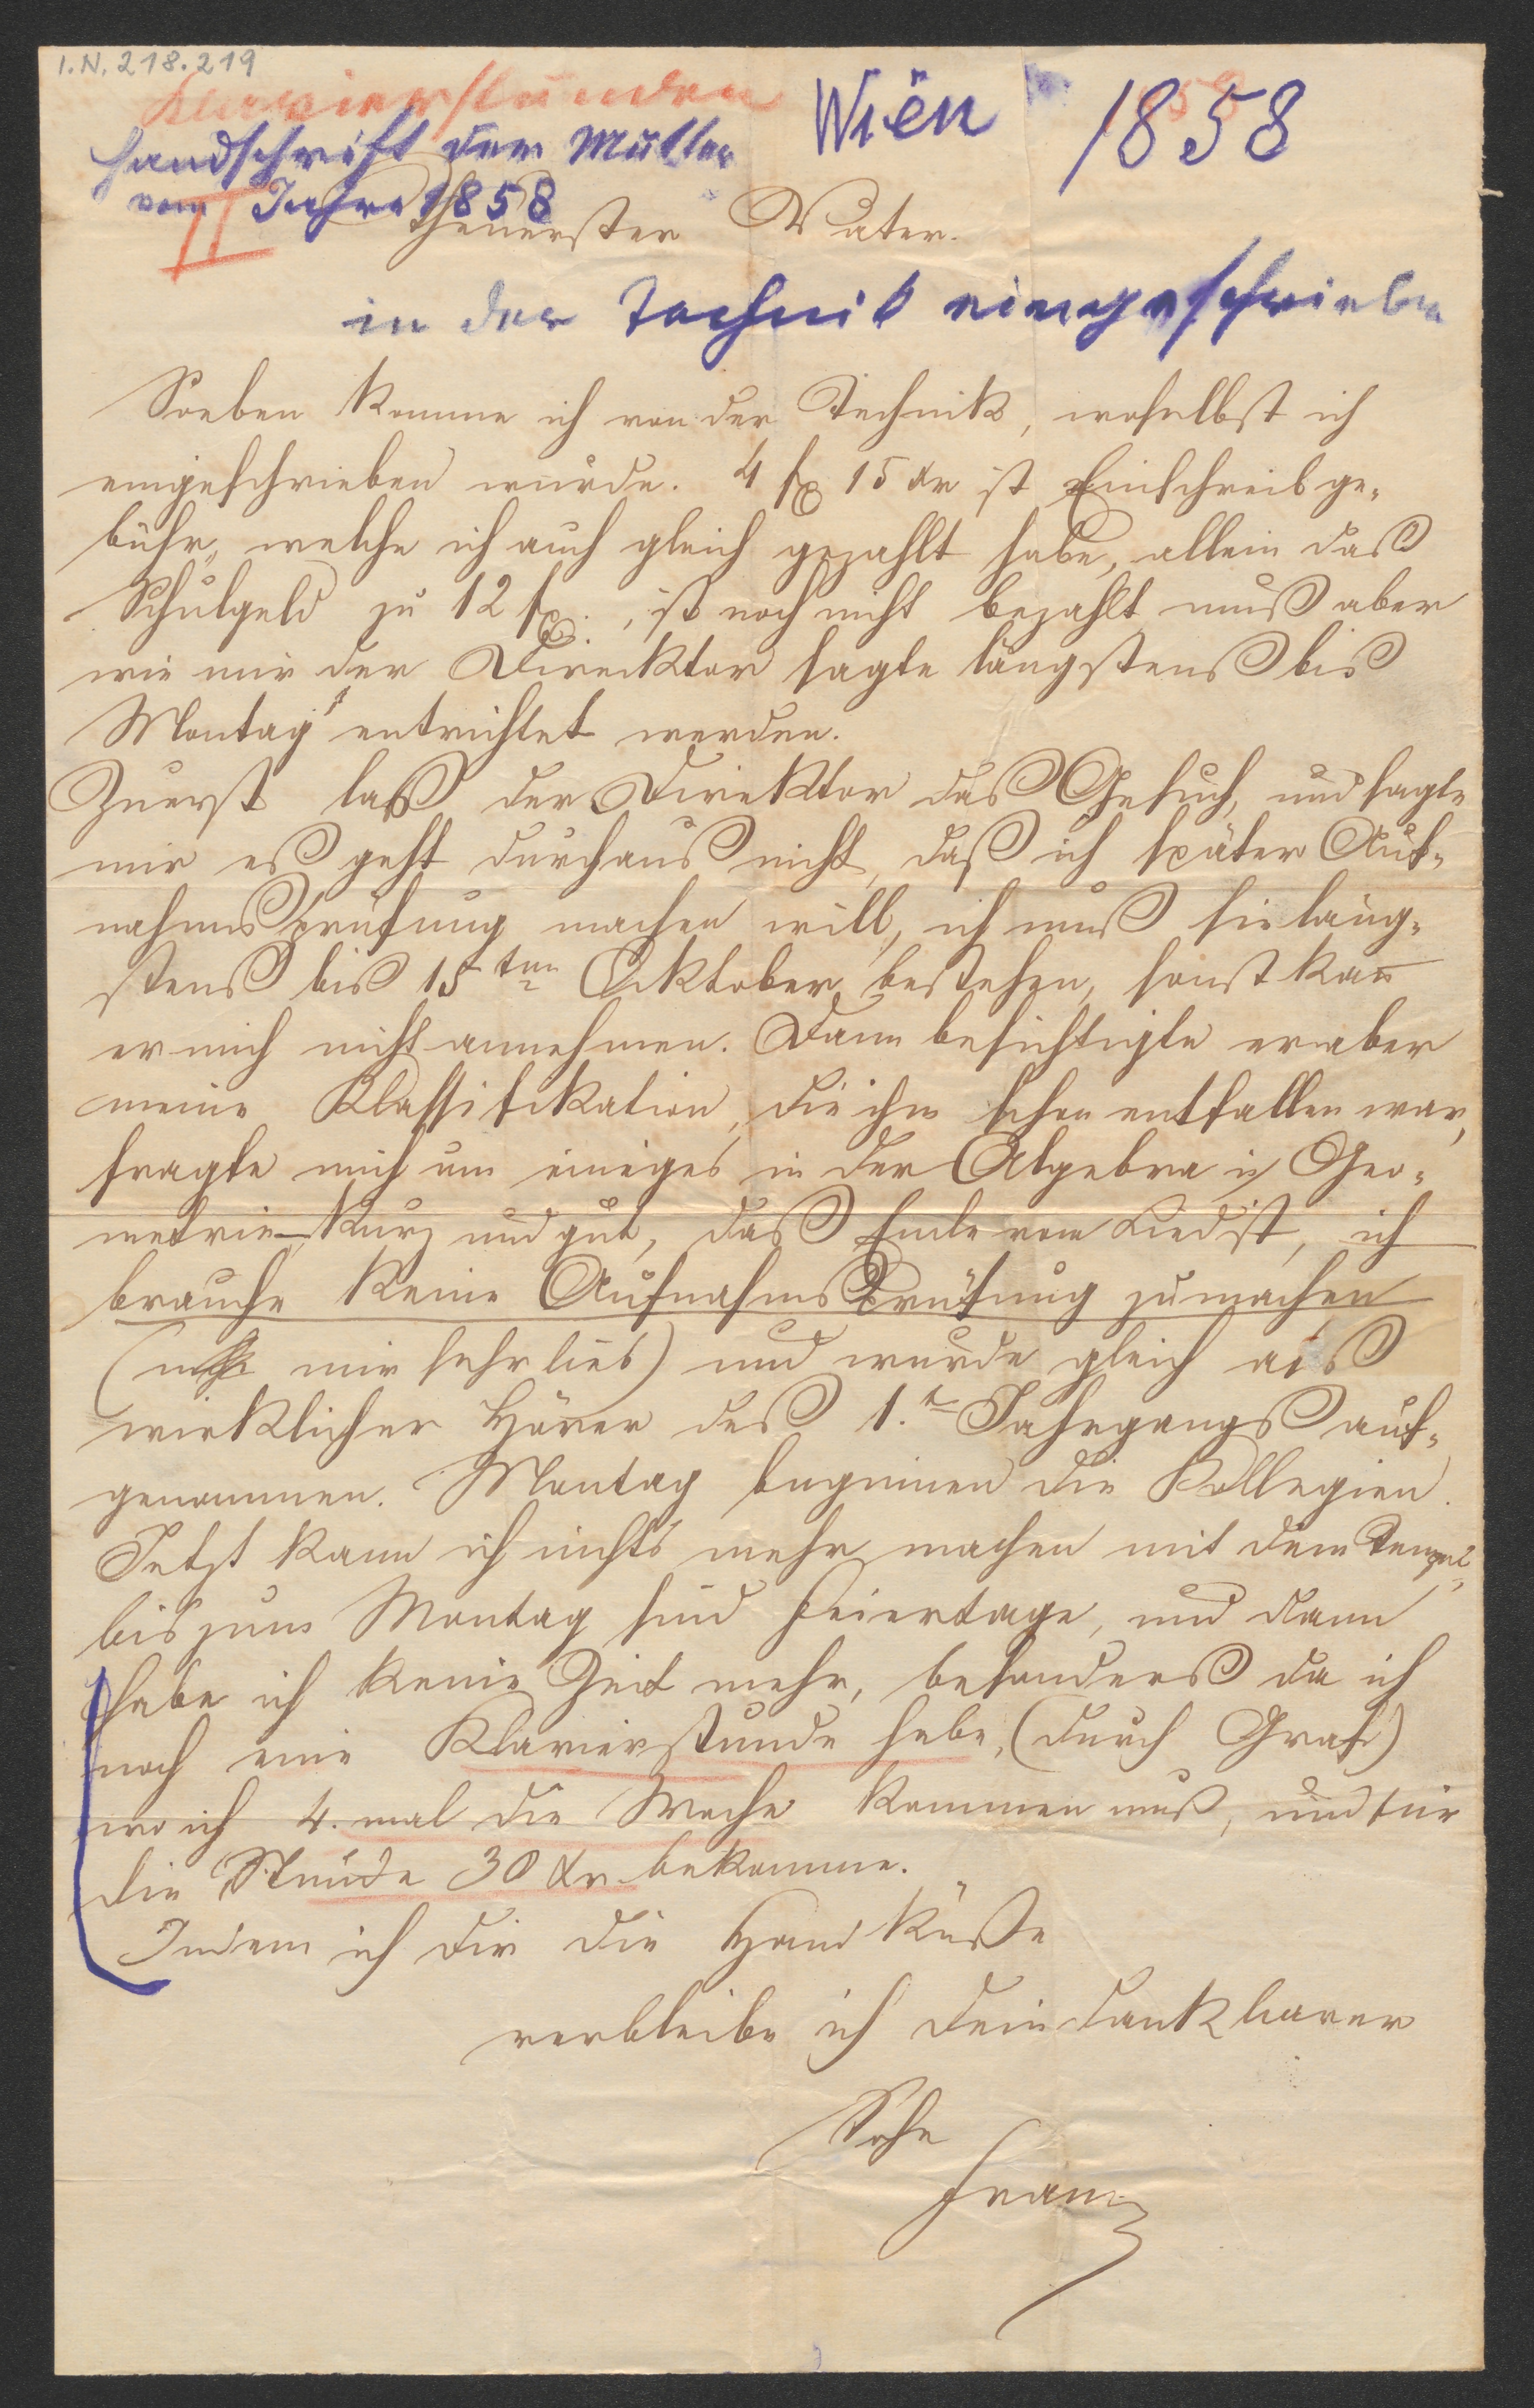 I.N. 218.219
Klavierstunden
Wien 1858
Handschrift der Mutter
vom Jahre 1858
II
Theuerster Vater.
in der Technik eingeschrieben
Soeben komme ich von der Technik, woselbst ich
eingeschrieben wurde. 4 fl 15 xr ist Einschreibge-
bühr, welche ich auch gleich gezahlt habe, allein daß
Schulgeld zu 12 fl., ist noch nicht bezahlt muß aber
wie mir der Direktor sagte längstenß biß
Montag entrichtet werden.
Zuerst laß der Direktor daß Gesuch, und sagte
mir eß geht durchauß nicht, daß ich später Auf-
nahmsprüfung machen will, ich muß sie läng-
stenß biß 15ten Oktober bestehen, sonst kann
er mich nicht annehmen. Dann besichtigte er aber
meine Klassifikation, die ihm schon entfallen war,
fragte mich um einiges in der Algebra u Geo-
metrie kurz und gut, daß Ende vom Lied ist, ich
brauche keine Aufnahmsprüfung zu machen
( mir sehr lieb) und wurde gleich alß
wirklicher Hörer deß 1.t Jahrgangß auf-
genommen. Montag beginnen die Kollegien.
Jetzt kann ich nichts mehr machen mit dem Tempel
bis zum Montag sind Feiertage, und dann
habe ich keine Zeit mehr, besonderß da ich
noch eine Klavierstunde habe, (durch Graf)
wo ich 4. mal die Woche kommen muß, und für
die Stunde 30 xr bekomme.
Indem ich dir die Hand küße
verbleibe ich dein dankbarer
Sohn
Franz